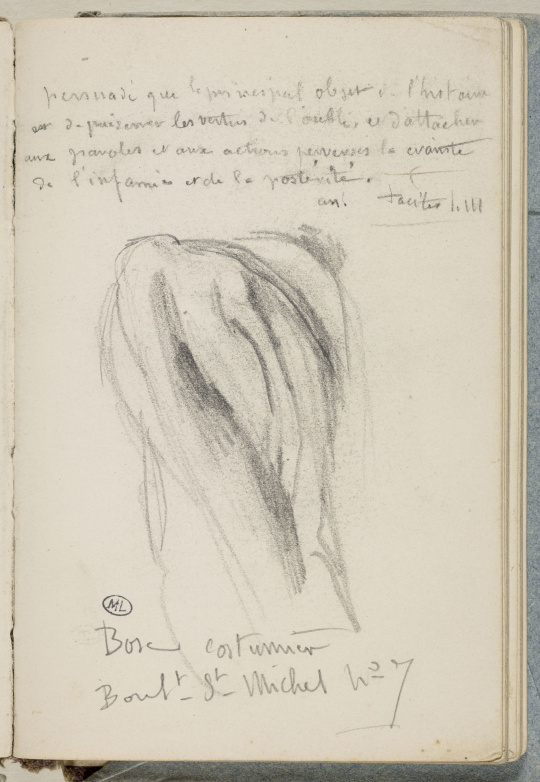 persuadé que le principal objet de l'histoire
est de préserver les vertus de l'oubli, et d'attacher
aux paroles et aux actions perverses la crainte
de l'infamie et de la postérité.
an. Tacite l. III
ML
Bosc costumier
Boult St Michel No 7